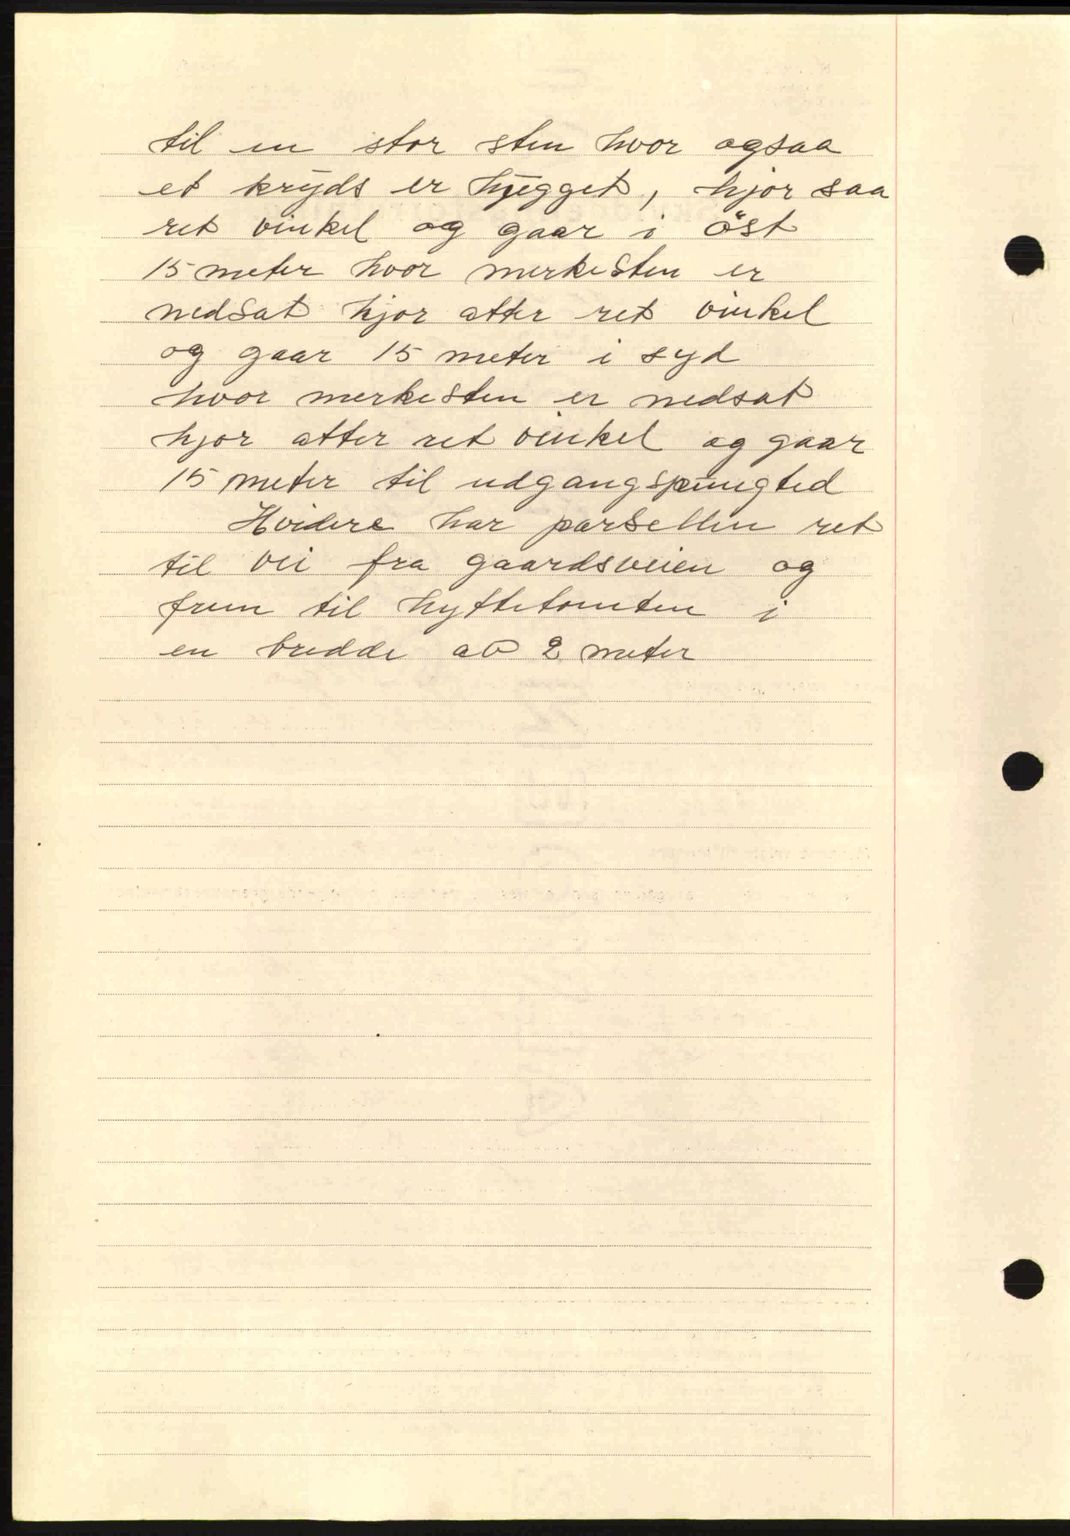 til en stor sten hvor ogsaa
et kryds er hygget, hjør saa
ret vinkel og gaar i öst
15 meter hvor merkesten er
nedsat hjor atter ret vinkel
og gaar 15 meter i syd
hvor merkesten er nedsat
hjor atter ret vinkel og gaar
15 meter til udgangspungted
Hvidere har parsellen ret
til vei fra gaardsveien og
frem til hyttetomten i
en bredde av 2 meter